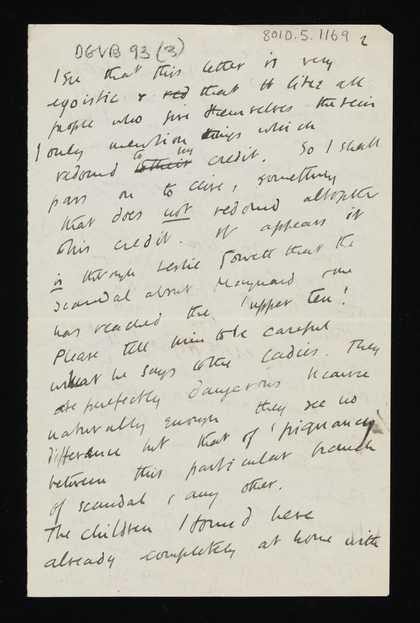 8010.5.1169
2
DGVB 93 (3)
I see that this letter is very
egoistic & red that it like all
people who give themselves the rein
I only mention things which
redound to my credit. So I shall
pass on to Clive, something
that does not redound altogether
to his credit. It appears it
is through Leslie Jowett that the
scandal about Maynard & me
has reached the 'upper ten'!
Please tell him to be careful
what he says to the Ladies. They
are perfectly dangerous because
naturally enough they see no
difference but that of 'piquancy'
between this particular branch
of scandal & any other.
The children I found here
already completely at home with